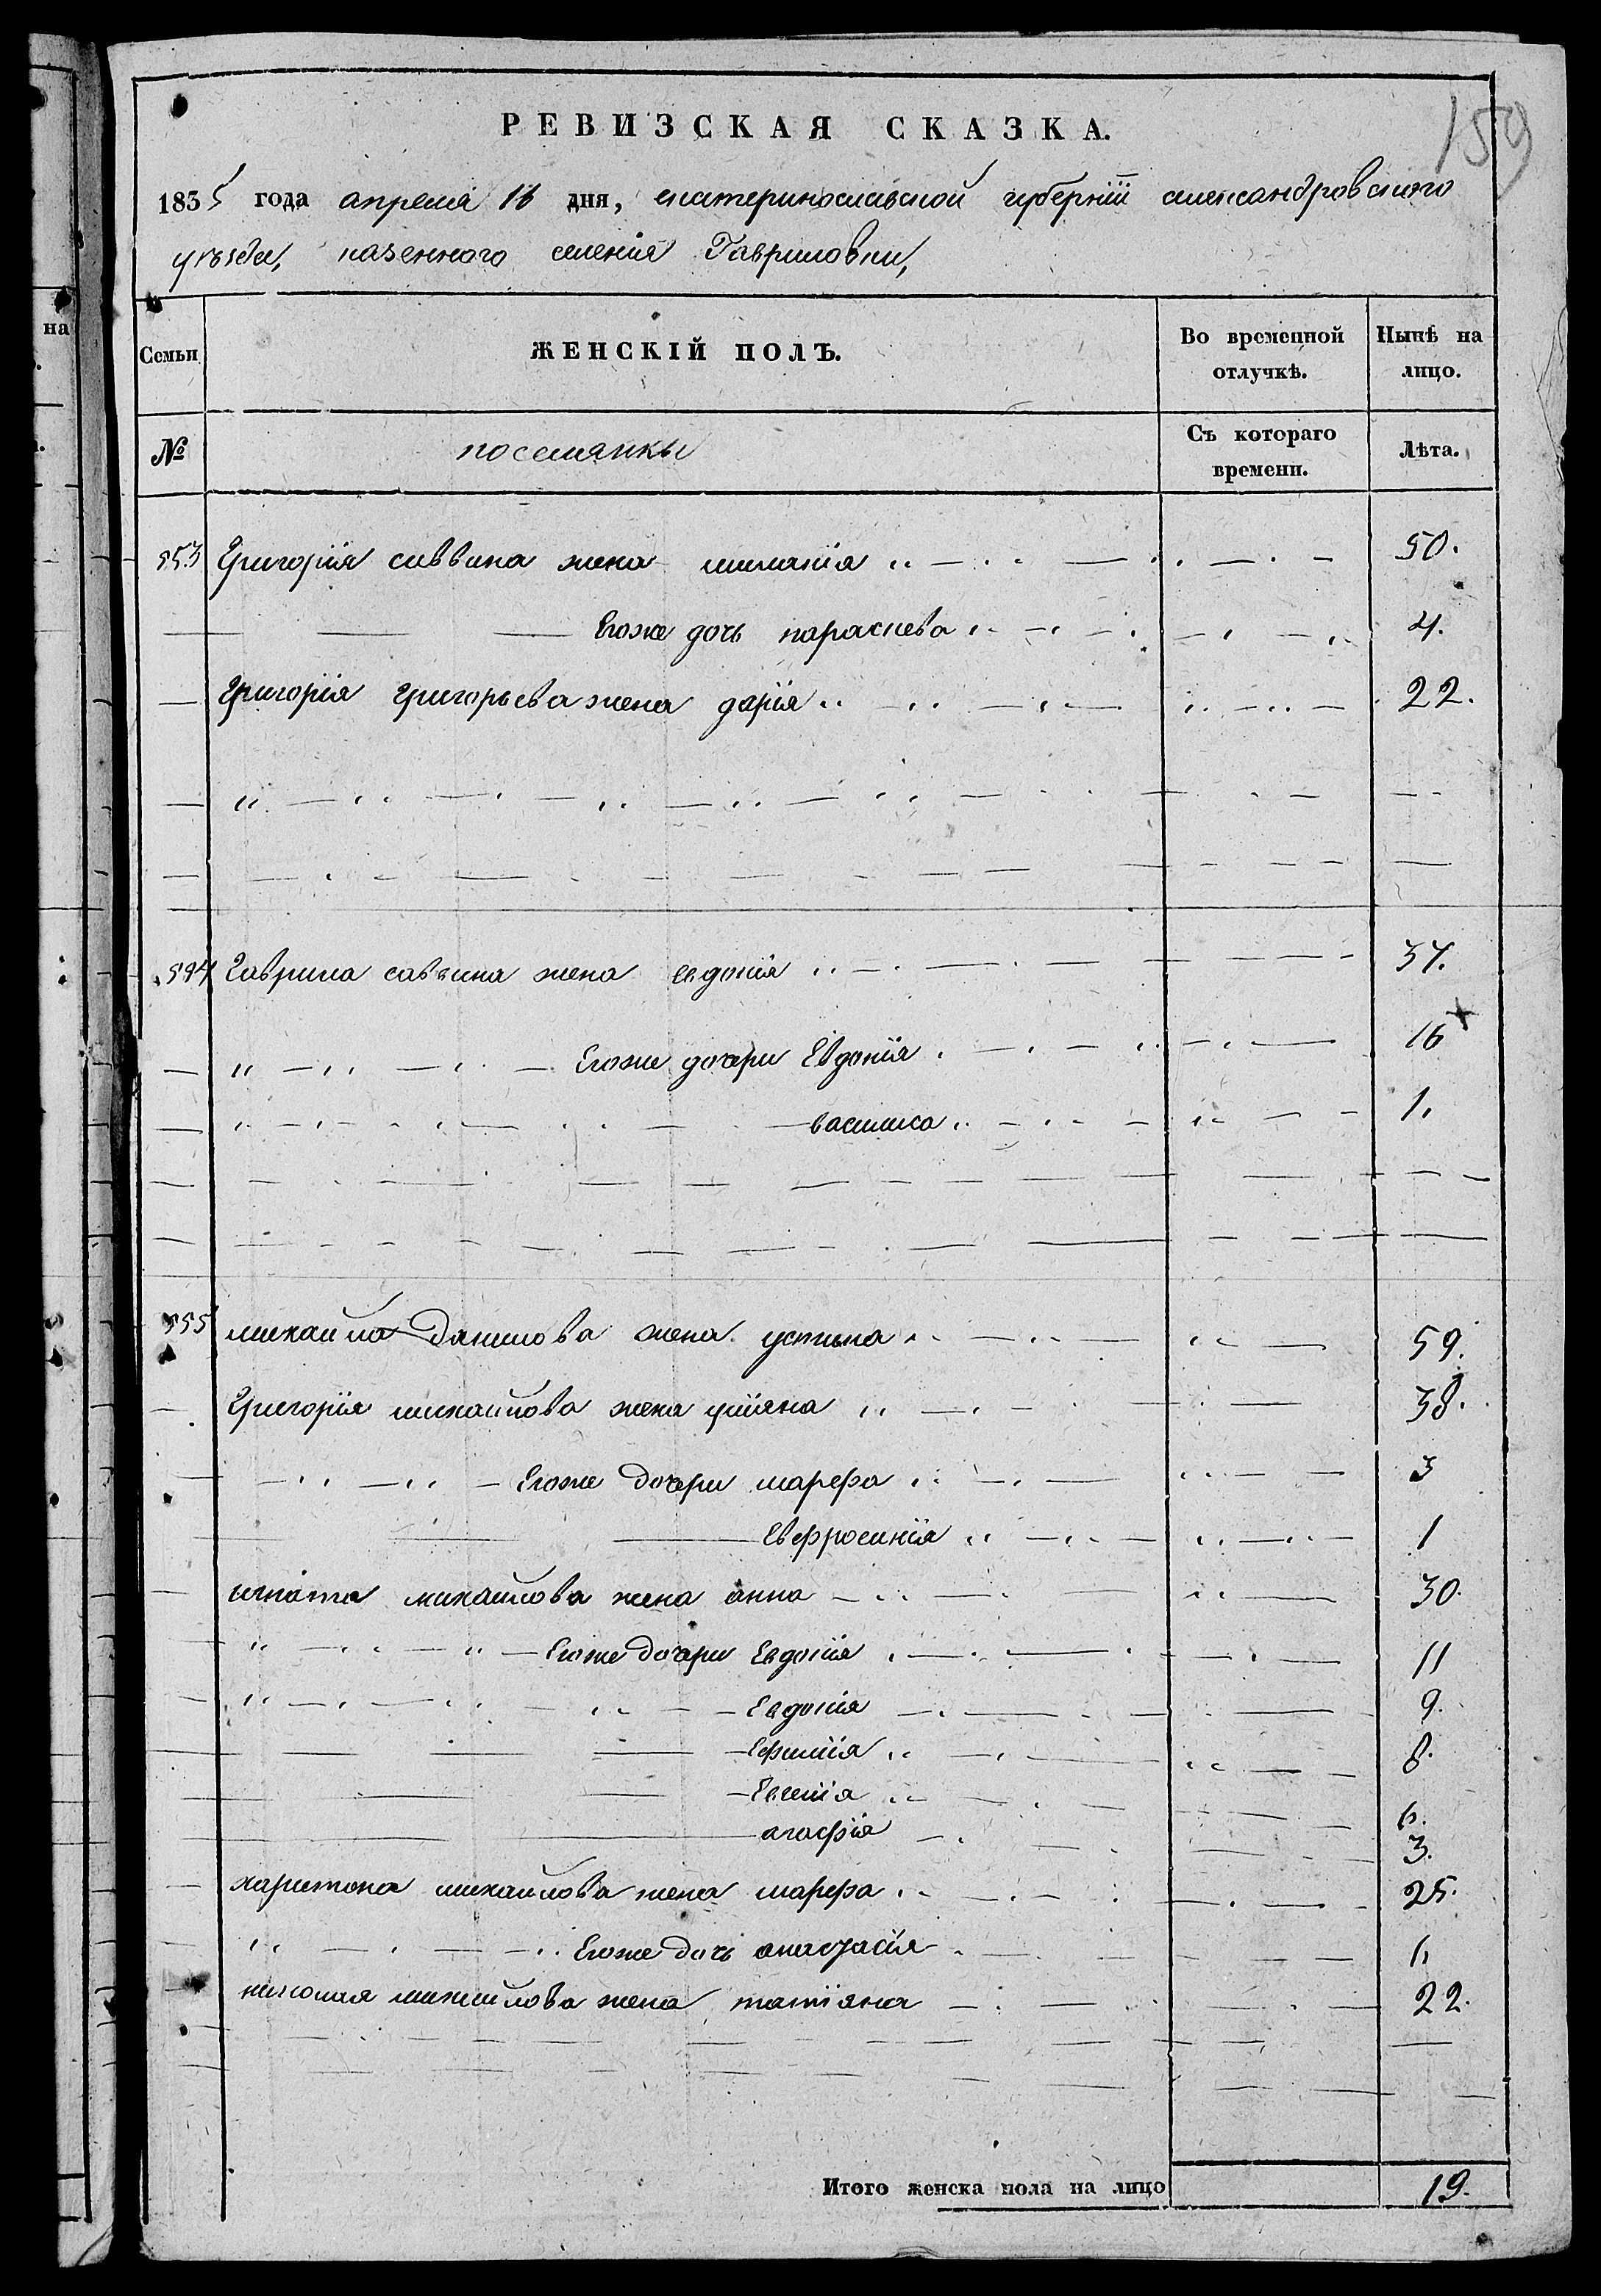 159
РЕВИЗСКАЯ СКАЗКА.
1835 года апреля 16 дня, екатеринославской губерніи александровского
уѣзда, казенного селенія Гавриловки,
на
Семьи
ЖЕНСКІЙ ПОЛЪ.
Во временной отлучкѣ.
Нынѣ на лицо.
№
поселянки
Съ котораго времени.
Лѣта.
553 Григорія саввина жена миланія 50.
Егоже дочь параскева 4.
Григорія Григорьева жена дарія 22.
554 Гаврила саввина жена евдокія 37.
Егоже дочери Евдокія 16
василиса 1.
555 михайла Данилова жена устина 59.
Григорія михайлова жена уліяна 38.
Егоже дочери марфа 3
Евфросинія 1
игната михайлова жена анна 30.
Егоже дочери Евдокія 11
Евдокія 9.
Ефимія 8.
Евгенія 6.
агафія 3.
харитона михайлова жена марфа 25.
Егоже дочь анастасія
николая михайлова жена татіяна 22.
Итого женска пола на лицо 19.